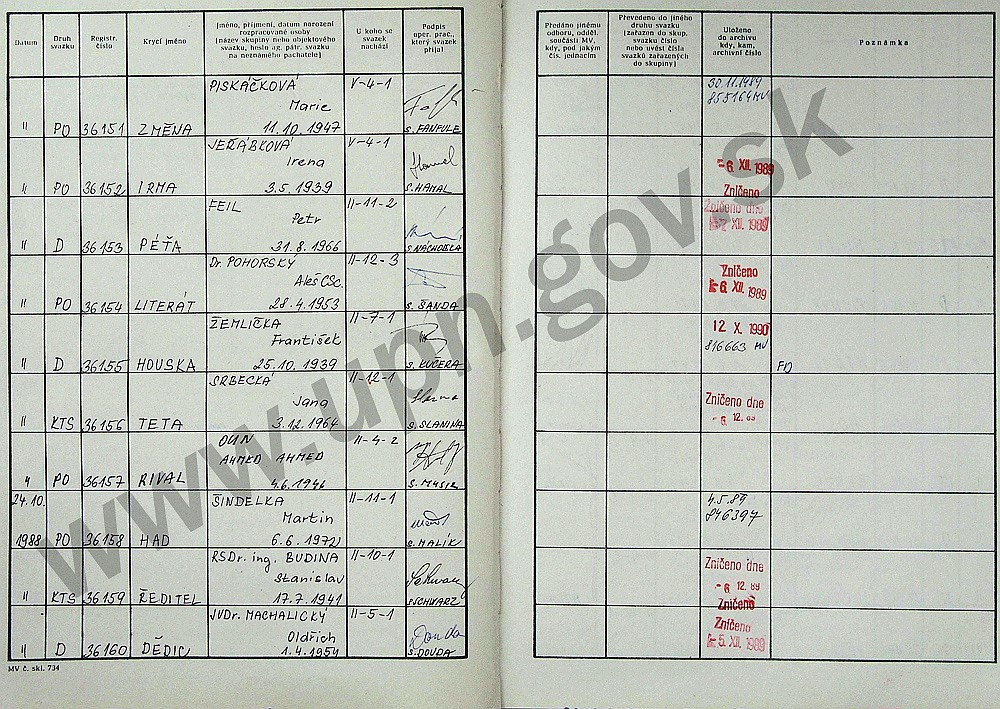 Datum
Druh svazku
Registr. číslo
Krycí jméno
Jméno, příjmení, datum narození rozpracované osoby (název skupiny nebo objektového svazku, heslo ag. pátr. svazku na neznámého pachatele)
U koho se svazek nachází
Podpis oper. prac., který svazek přijal
Předáno jinému odboru, odděl. součásti MV, kdy, pod jakým čís. jednacím
Převedeno do jiného druhu svazku (zařazen do skup. svazku číslo nebo uvést čísla svazků zařazených do skupiny)
Uloženo do archivu kdy, kam, archivní číslo
Poznámka
PISKÁČKOVÁ V-4-1 30.11.1989
Marie 855164 MV
" PO 36151 ZMĚNA 11.10.1947 s. FANFULE
JEŘÁBKOVÁ V-4-1
Irena - 6. XII. 1989
" PO 36152 IRMA 3.5.1939 s. HAMAL Zničeno
FEIL II-11-2 Zničeno dne
Petr XII. 1989
" D 36153 PÉŤA 31.8.1966
Dr. POHORSKÝ II-12-3 Zničeno
Aleš CSc. 6. XII. 1989
" PO 36154 LITERÁT 28.4.1953 s. ŠANDA
ŽEMLIČKA II-7-1 12 X. 1990
František 816663 MV
" D 36155 HOUSKA 25.10.1939 s. KUČERA
SRBECKÁ II-12-1 Zničeno dne
Jana - 6. 12. 89
" KTS 36156 TETA 3.12.1964 s. SLANINA
OUN II-4-2
AHMED AHMED
" PO 36157 RIVAL 4.6.1946 s. MUSIL
24.10. ŠINDELKA II-11-1 4.5.89
Martin 846397
1988 PO 36158 HAD 6.6.1972 s. MALÍK
RSDr. ing. BUDINA II-10-1 Zničeno dne
Stanislav - 6 12. 89
" KTS 36159 ŘEDITEL 17.7.1941 s. SCHWARZ Zničeno
JUDr. MACHALICKÝ II-5-1 Zničeno
Oldřich 5. XII. 1989
" D 36160 DĚDIC 1.4.1954 s. DOUDA
MV č. skl. 734
www.upn.gov.sk